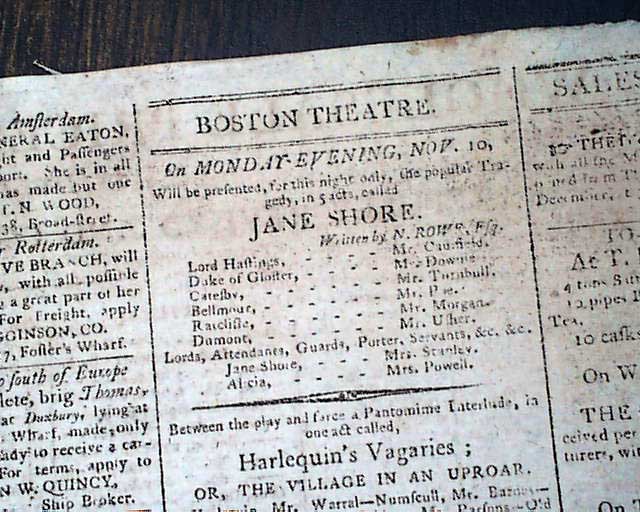 Amsterdam.
NERAL EATON,
ht and Passengers
port. She is in all
has made but one
N. WOOD,
38, Broad-street.
Rotterdam.
VE BRANCH, will
, with all possible
g a great part of her
For freight, apply
GGINSON, CO.
7, Foster's Wharf.
South of Europe
lete, brig Thomas,
ar Duxbury, lying at
Wharf, made only
ady to receive a car-
For terms, apply to
N W. QUINCY,
Ship Broker.
BOSTON THEATRE.
On MONDAY-EVENING, NOV. 10,
Will be presented, for this night only, the popular Tra-
gedy, in 5 acts, called
JANE SHORE.
Written by N. ROWE, Esq.
Lord Hastings, - - - - Mr. Caufield.
Duke of Gloster, - - - - Mr. Downie.
Catesby, - - - - Mr. Turnbull.
Bellmour, - - - - Mr.
Ratcliffe, - - - - Mr. Morgan.
Dumont, - - - - Mr. Usher.
Lords, Attendants, Guards, Porter, Servants, &c. &c.
Jane Shore, - - - - Mrs. Stanley.
Alicia, - - - - Mrs. Powell.
Between the play and farce a Pantomime Interlude, in
one act called,
Harlequin's Vagaries;
OR, THE VILLAGE IN AN UPROAR.
Mr. Warral—Numscull, Mr.
Mr. Parsons—Old
SALE
THE
with all the
December,
TO
At T.
4 tons
12 pipes
Tea,
10 casks
On W
THE
ceived per
turers, wit
On T